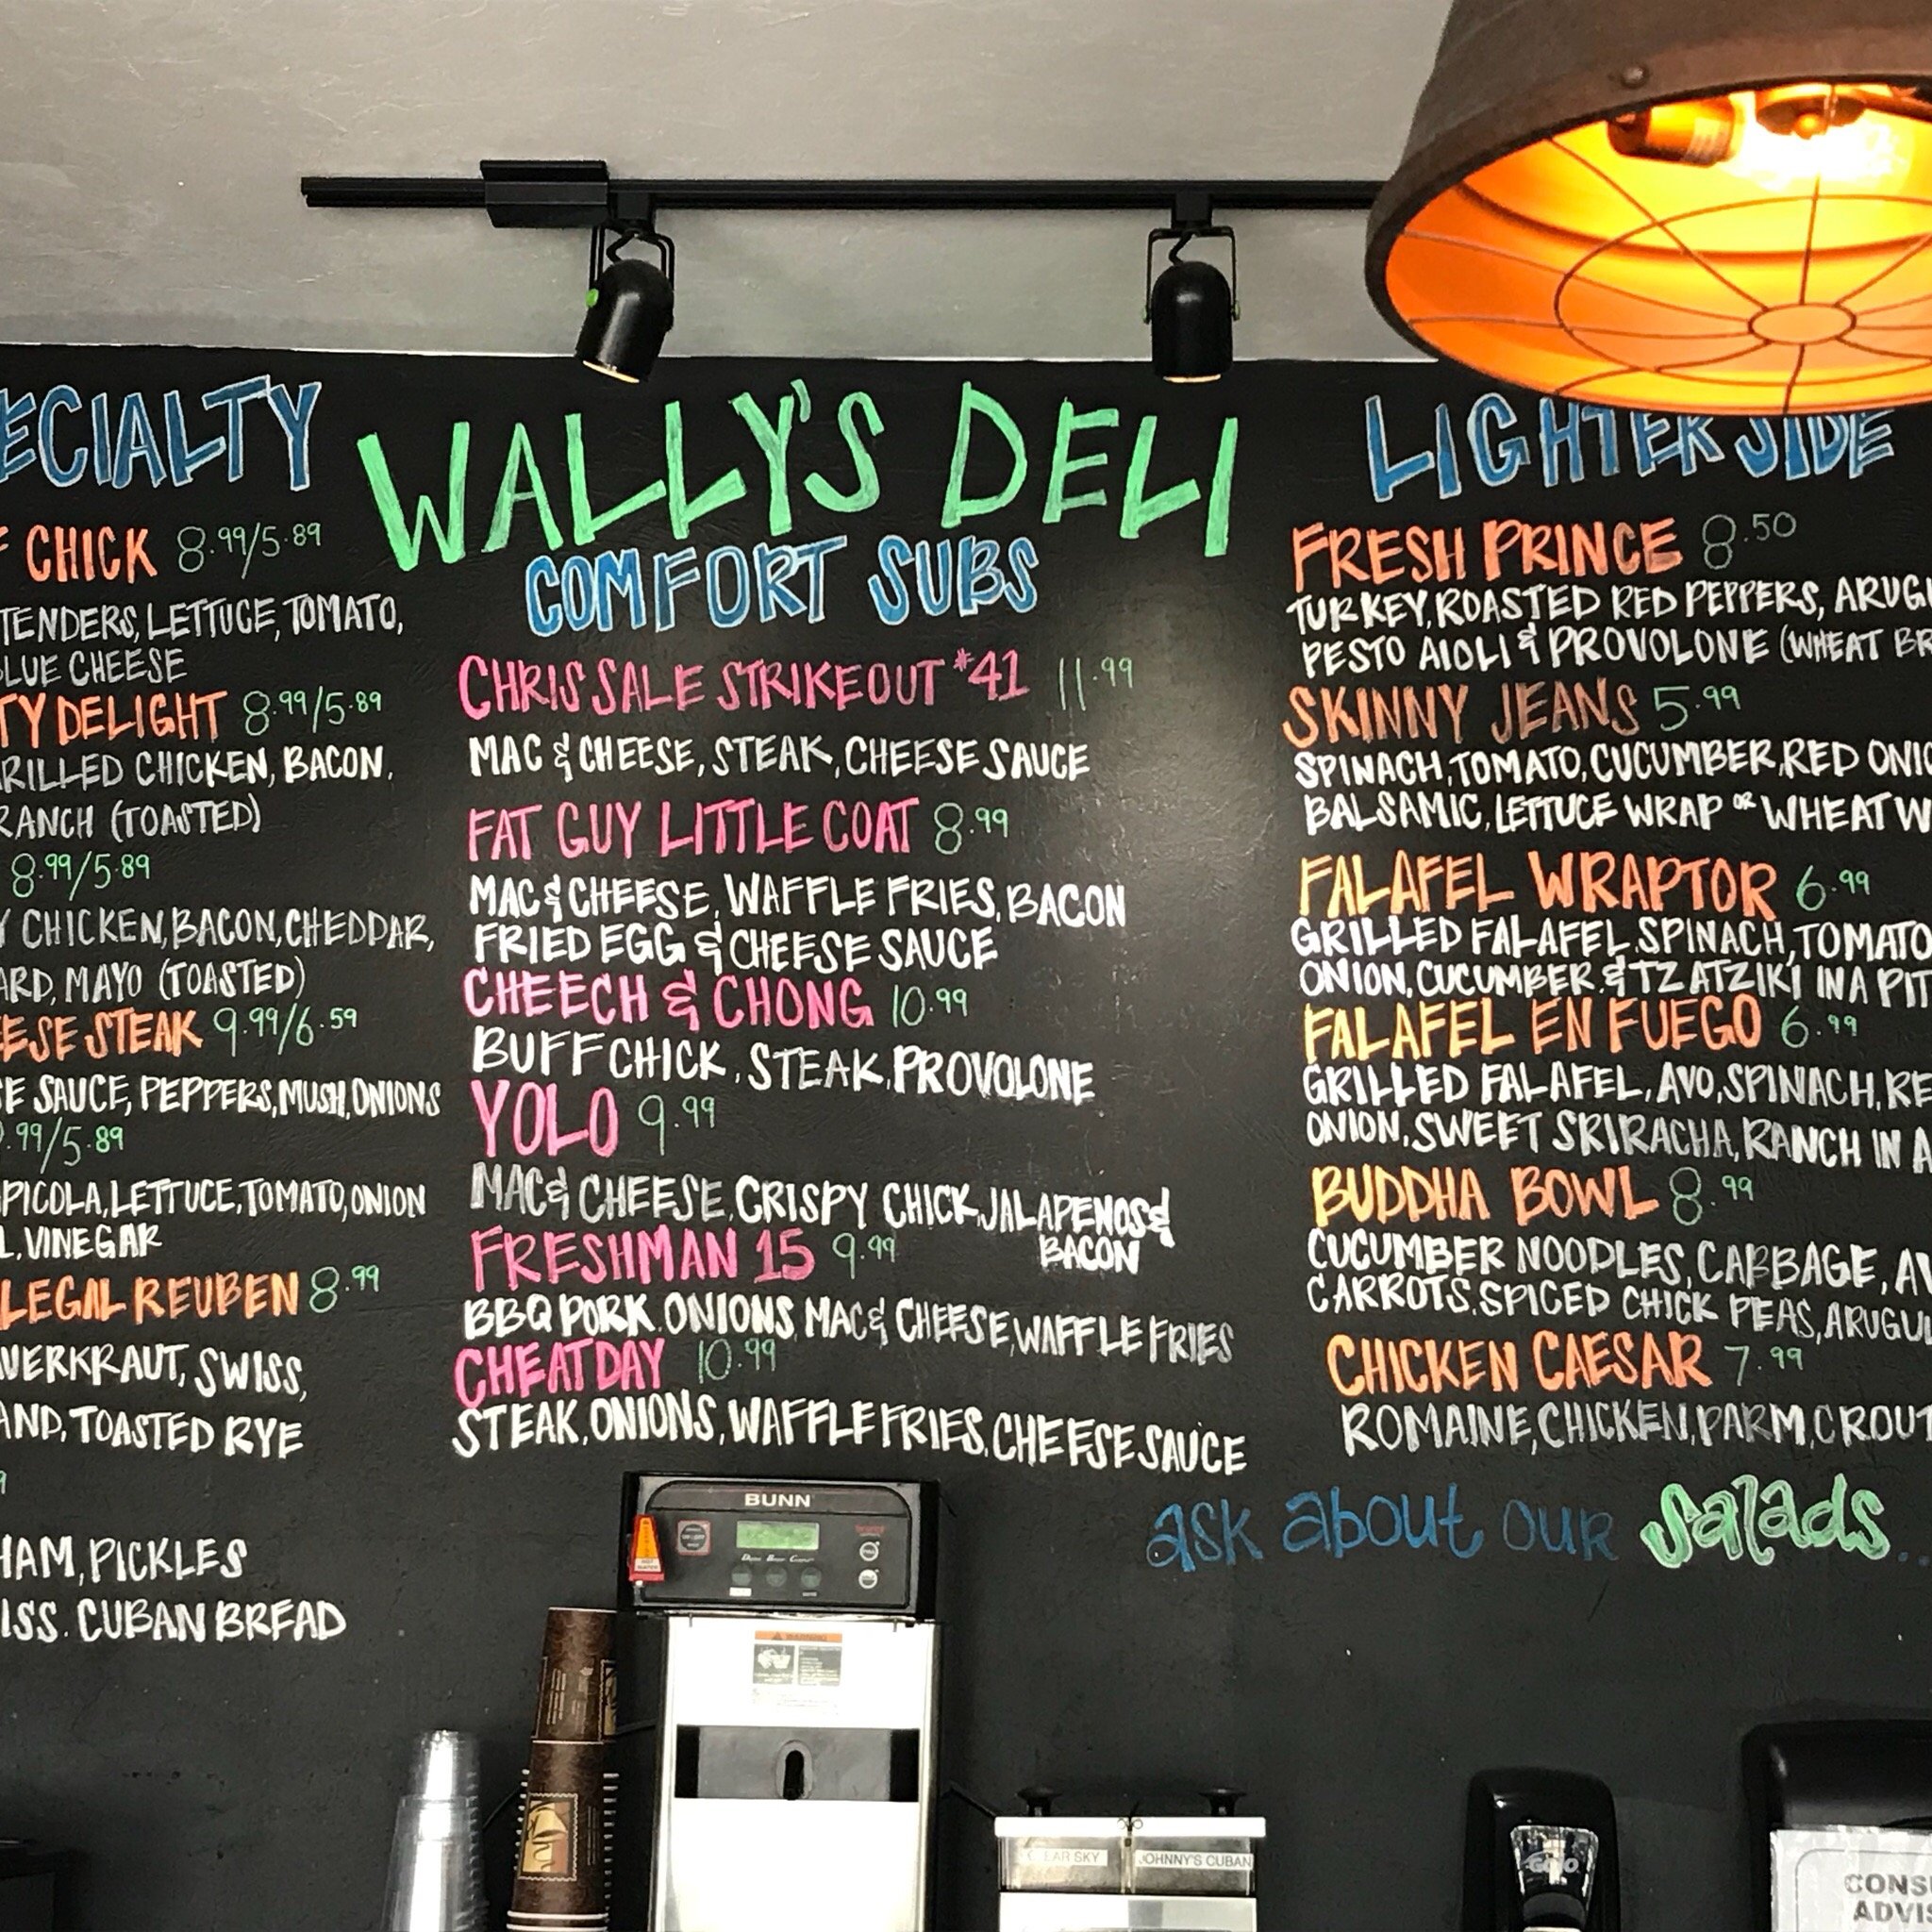 ECIALTY
F CHICK 8.99/5.89
TENDERS, LETTUCE, TOMATO,
BLUE CHEESE
TY DELIGHT 8.99/5.89
RILLED CHICKEN, BACON,
RANCH (TOASTED)
8.99/5.89
Y CHICKEN, BACON, CHEDDAR,
ARD, MAYO (TOASTED)
ESE STEAK 9.99/6.59
SE SAUCE, PEPPERS, MUSH, ONIONS
.99/5.89
PICOLA, LETTUCE, TOMATO, ONION
L, VINEGAR
LEGAL REUBEN 8.99
UERKRAUT, SWISS,
AND, TOASTED RYE
9
HAM, PICKLES
ISS. CUBAN BREAD
WALLY'S DELI
COMFORT SUBS
CHRIS SALE STRIKEOUT #41 11.99
MAC & CHEESE, STEAK, CHEESE SAUCE
FAT GUY LITTLE COAT 8.99
MAC & CHEESE, WAFFLE FRIES, BACON
FRIED EGG & CHEESE SAUCE
CHEECH & CHONG 10.99
BUFF CHICK, STEAK, PROVOLONE
YOLO 9.99
MAC & CHEESE, CRISPY CHICK, JALAPENOS &
BACON
FRESHMAN 15 9.99
BBQ PORK, ONIONS, MAC & CHEESE, WAFFLE FRIES
CHEATDAY 10.99
STEAK, ONIONS, WAFFLE FRIES, CHEESE SAUCE
LIGHTER SIDE
FRESH PRINCE 8.50
TURKEY, ROASTED RED PEPPERS, ARUG
PESTO AIOLI & PROVOLONE (WHEAT BR
SKINNY JEANS 5.99
SPINACH, TOMATO, CUCUMBER, RED ONIO
BALSAMIC, LETTUCE WRAP OR WHEAT W
FALAFEL WRAPTOR 6.99
GRILLED FALAFEL, SPINACH, TOMATO
ONION, CUCUMBER, & TZATZIKI IN A PIT
FALAFEL EN FUEGO 6.99
GRILLED FALAFEL, AVO, SPINACH, RE
ONION, SWEET SRIRACHA, RANCH IN A
BUDDHA BOWL 8.99
CUCUMBER NOODLES, CABBAGE, AV
CARROTS, SPICED CHICK PEAS, ARUGU
CHICKEN CAESAR 7.99
ROMAINE, CHICKEN, PARM, CROUT
ask about our Salads...
BUNN
WARNING
CLEAR SKY
JOHNNY'S CUBAN
GOJO
CONS
ADVIS